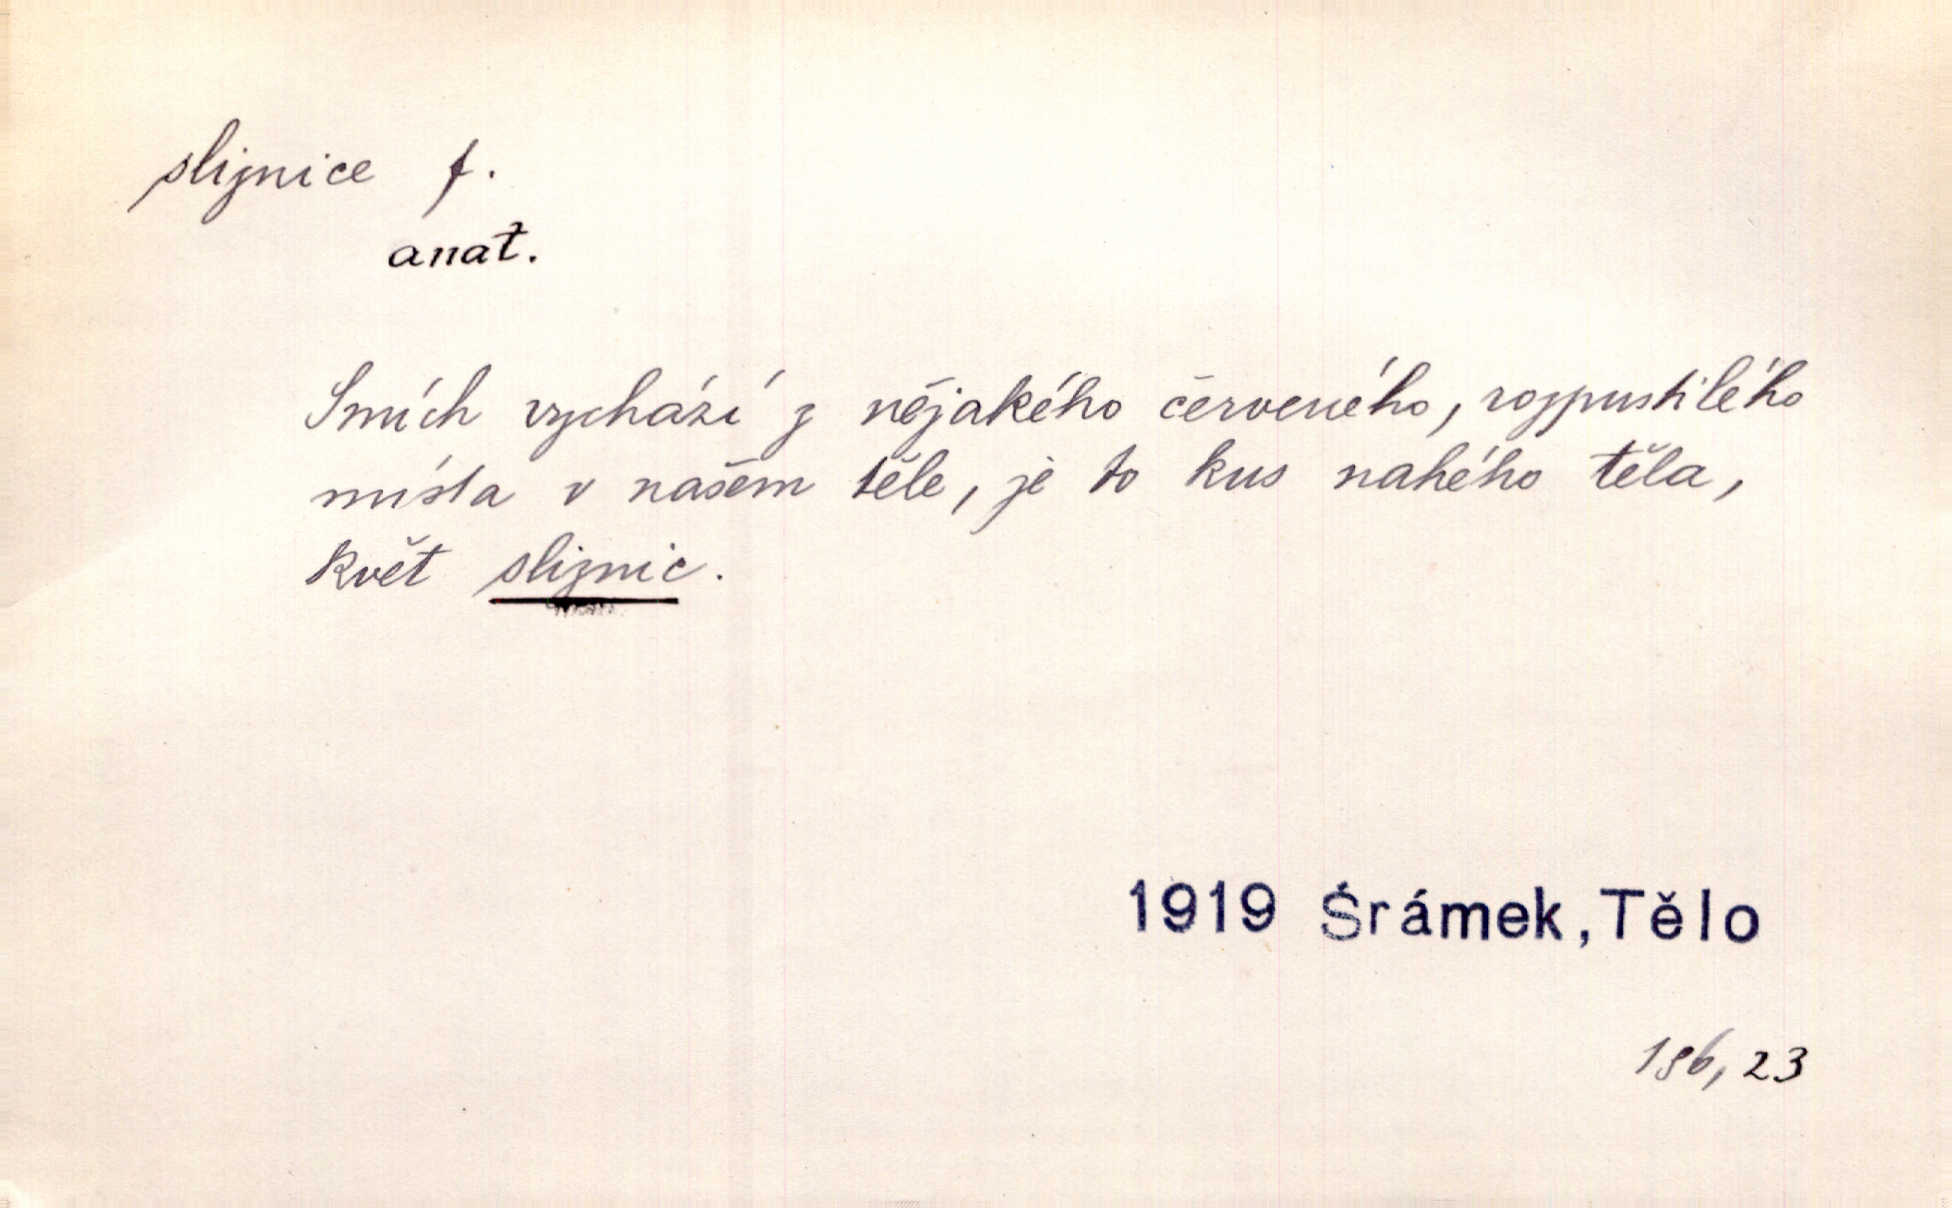 sliznice f.
anat.
Smích vychází z nějakého červeného, rozpustilého
místa v našem těle, je to kus nahého těla,
květ sliznic.
1919 Šrámek, Tělo
196, 23